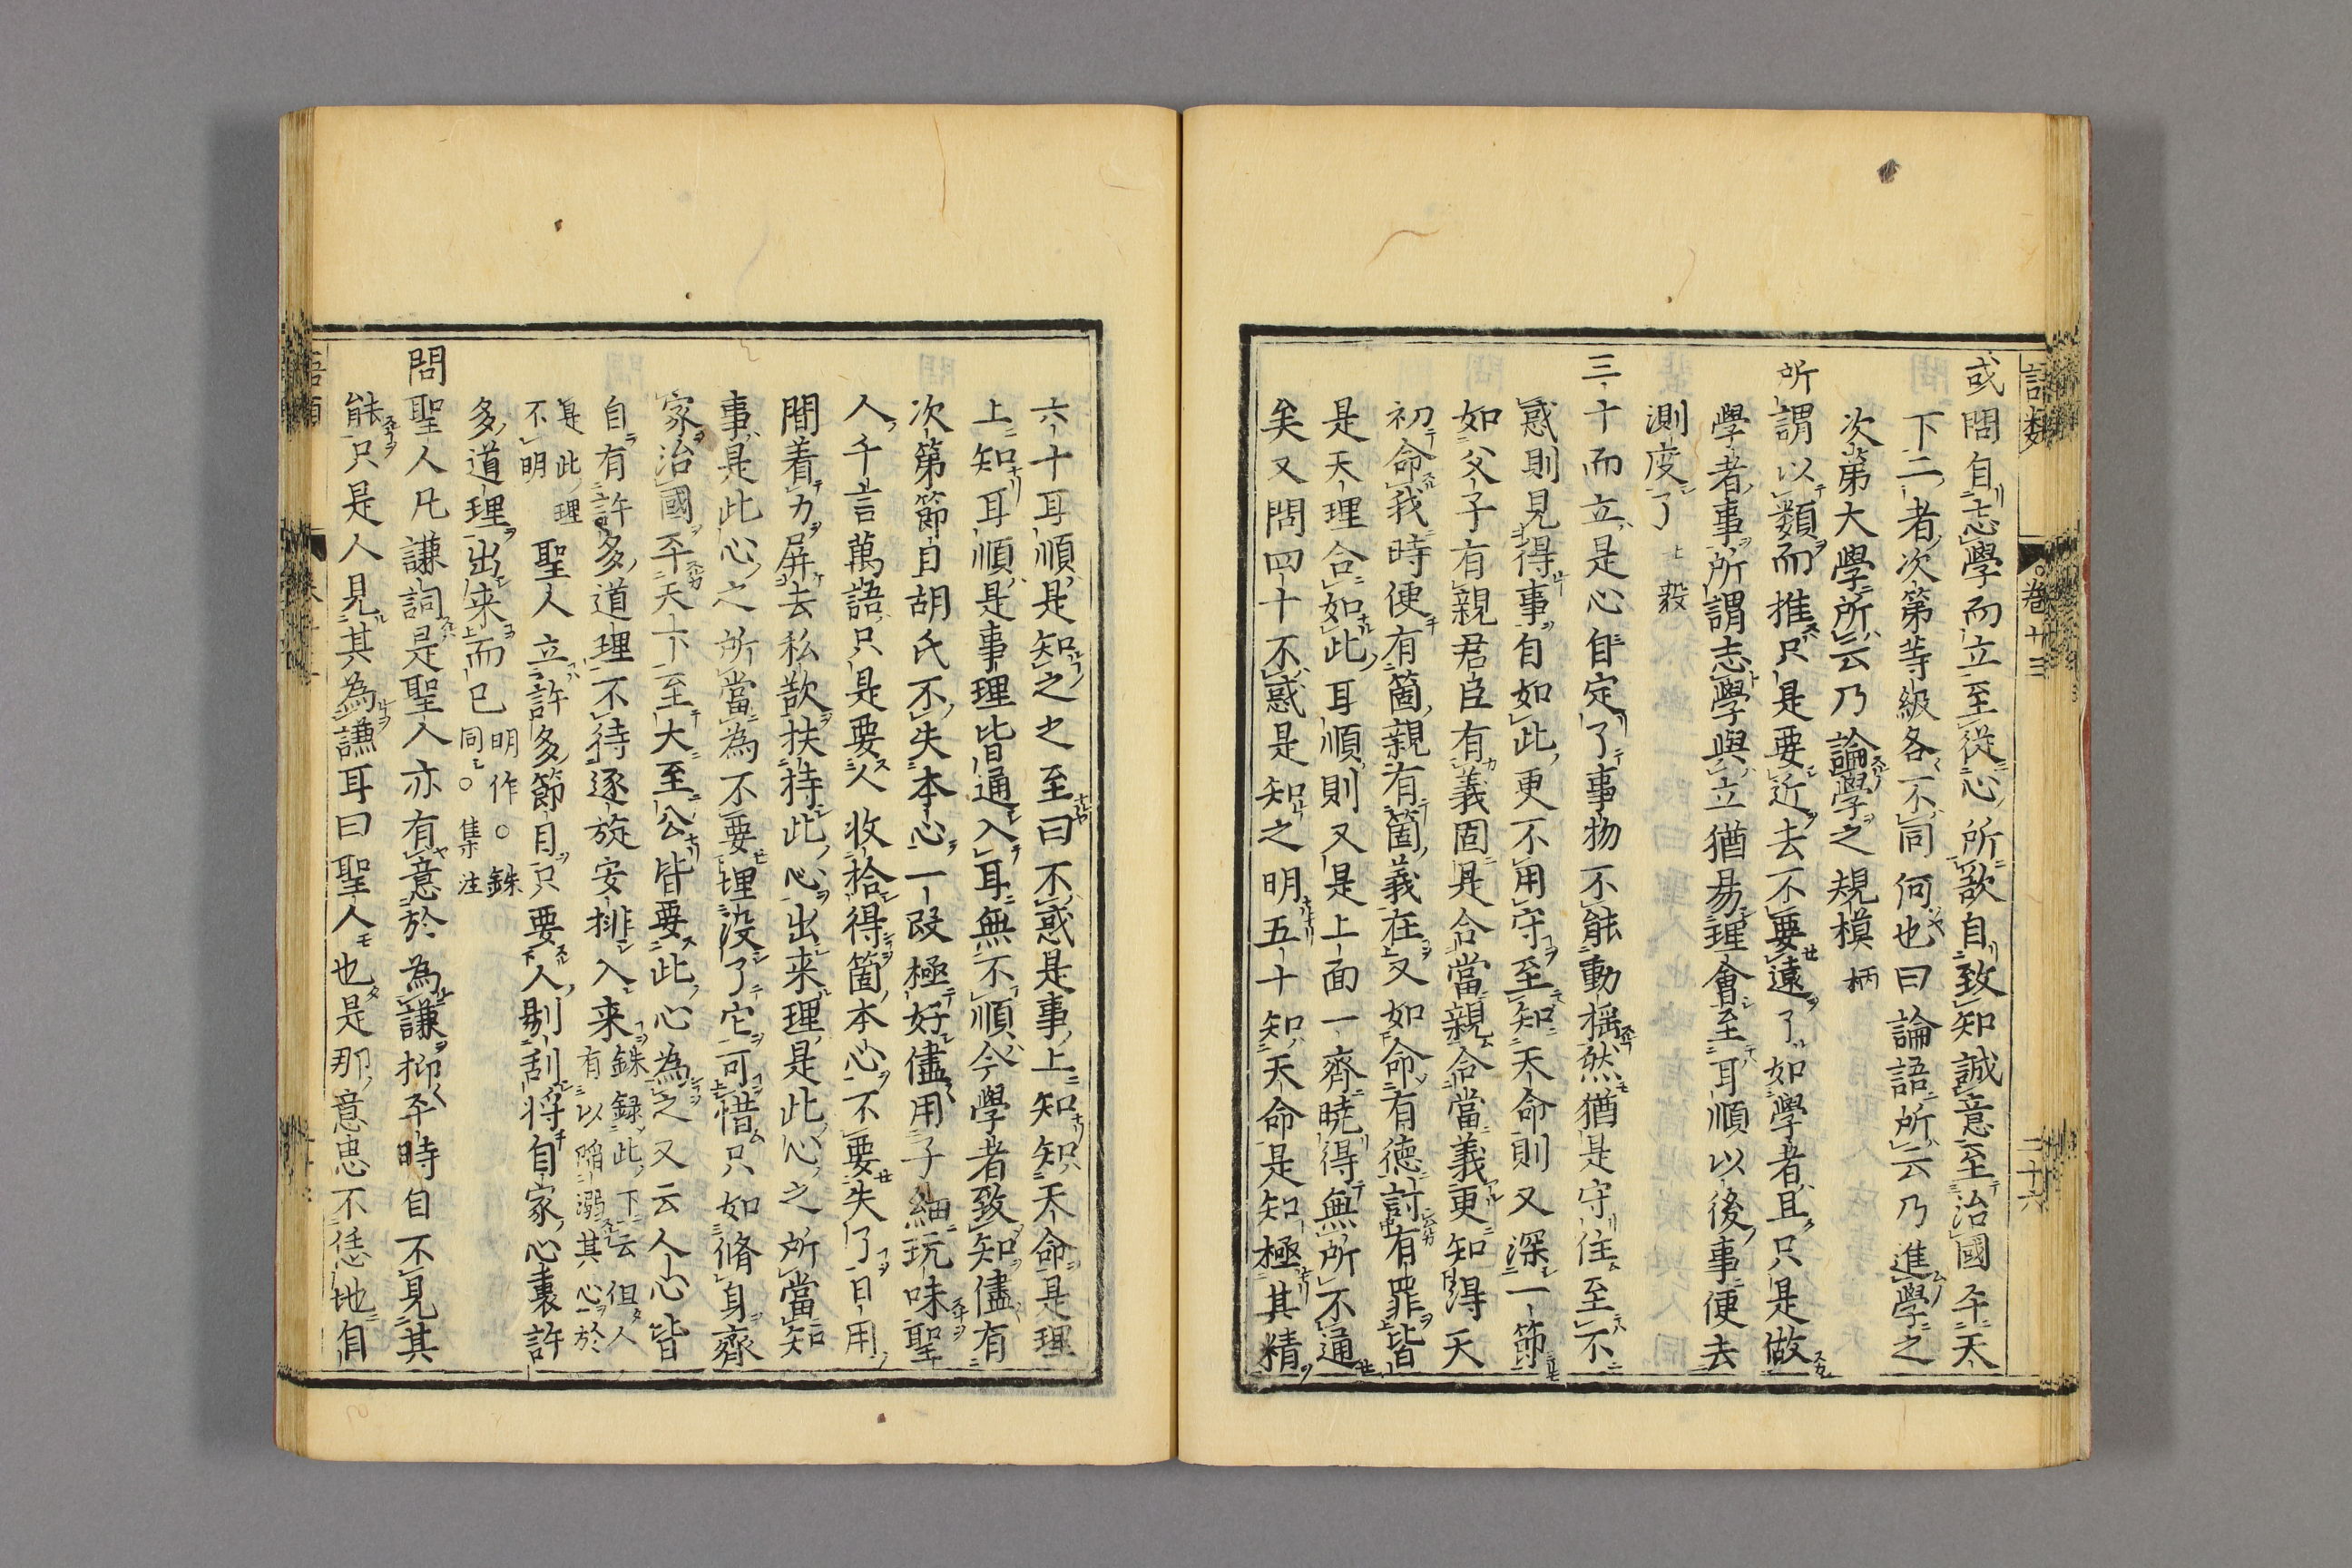 語類 卷十三 二十六
或問自志學而立至從心所欲自致知誠意至治國平天
下二者次第等級各不同何也曰論語所云乃進學之
次第大學所云乃論學之規模 柄
所謂以類而推只是要近去不要遠了如學者且只是做
學者事所謂志學與立猶易理會至耳順以後事便去
測度了 上毅
三十而立是心自定了事物不能動搖然猶是守住至不
惑則見得事自如此更不用守至知天命則又深一節
如父子有親君臣有義固是合當親合當義更知得天
初命我時便有箇親有箇義在又如命有德討有罪皆
是天理合如此耳順則又是上面一齊曉得無所不通
矣又問四十不惑是知之明五十知天命是知極其精
六十耳順是知之之至曰不惑是事上知知天命是理
上知耳順是事理皆通入耳無不順今學者致知儘有
次第節目胡氏不失本心一段極好儘用子細玩味聖
人千言萬語只是要人收拾得箇本心不要失了日用
間着力屏去私欲扶持此心出来理是此心之所當知
事是此心之所當為不要埋没了它可惜只如脩身齊
家治國平天下至大至公皆要此心為之又云人心皆
自有許多道理不待逐旋安排入来 銖録此下云但人
有以陷溺其心於
是此理
不明 聖人立許多節目只要人剔刮將自家心裏許
多道理出来而已 明作○銖
同○集注
問聖人凡謙詞是聖人亦有意於為謙抑平時自不見其
能只是人見其為謙耳曰聖人也是那意思不恁地自